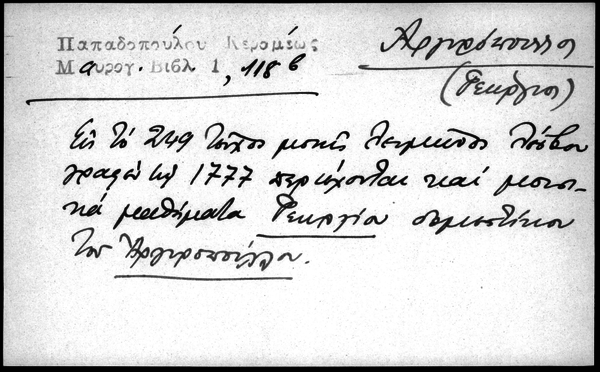 Παπαδοπούλου Κεραμέως
Μαυρογ. Βιβλ 1, 118 β
Αργυρόπουλος
(Γεώργιος)
Εις το 249 τεύχος μονής Λειμώνος Λέσβου
γραφέν τω 1777 περιέχονται και μουσι-
κά μαθήματα Γεωργίου
του Αργυροπούλου.